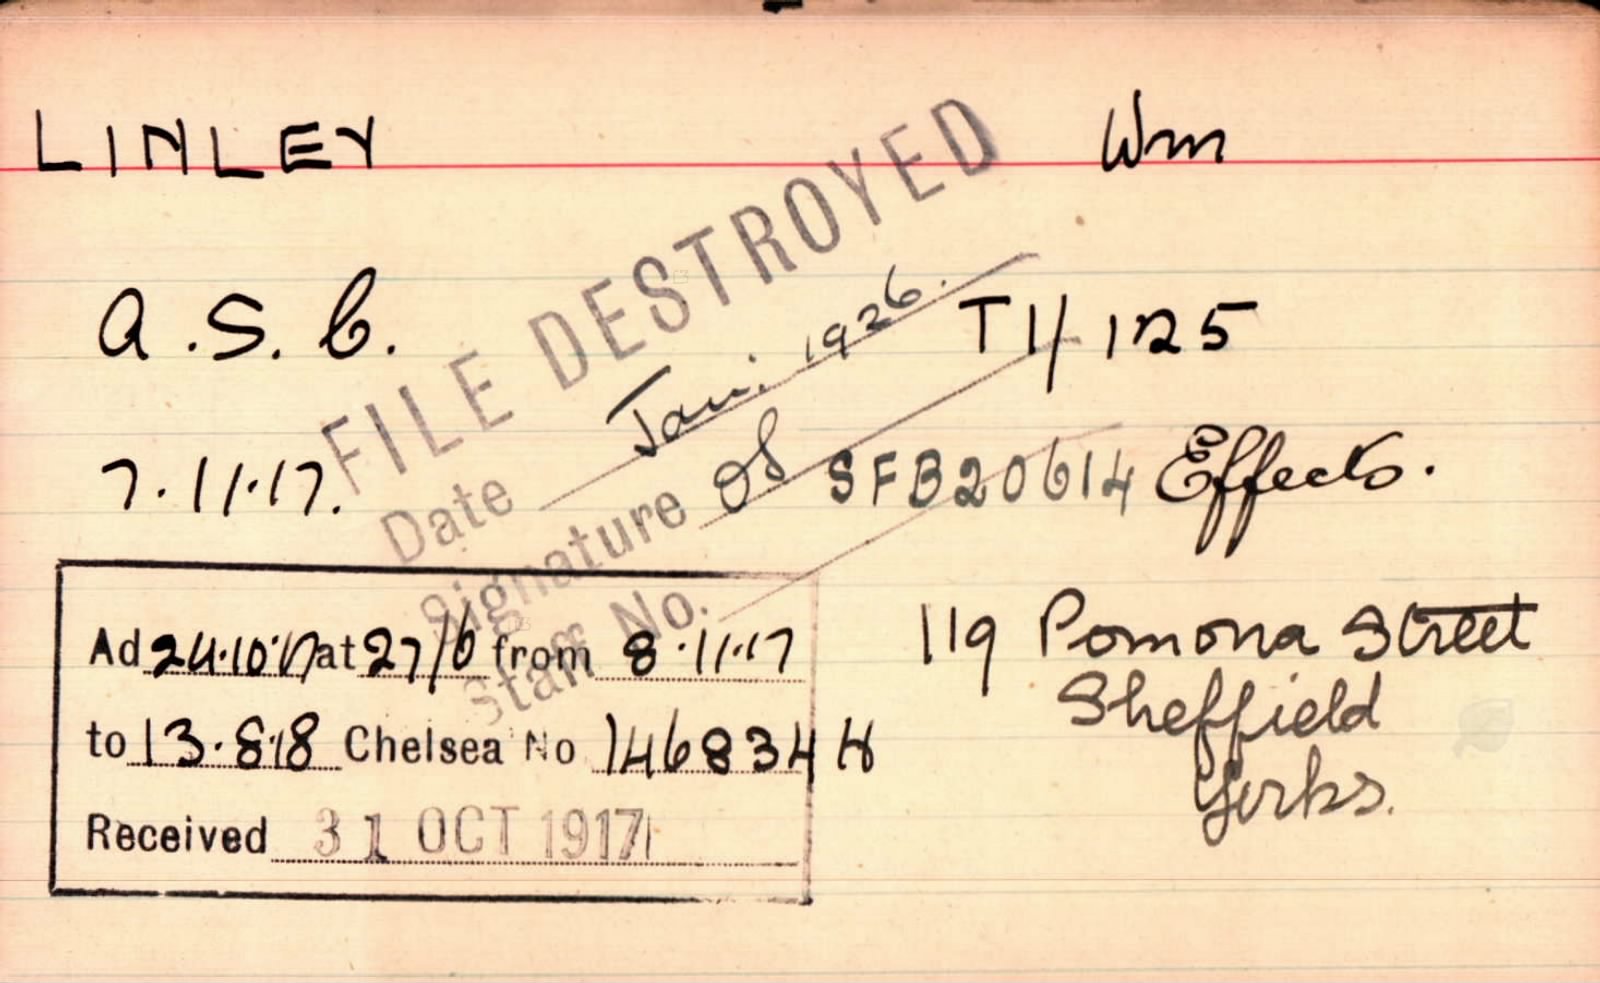 LINLEY Wm
FILE DESTROYED
A.S.C. T1/125
Date Jan. 1926.
7.11.17. SFB20614 Effects.
Signature
Staff No.
Ad 24.10.17 at 27/6 from 8.11.17
to 13.8.18 Chelsea No 146834 H
Received 31 OCT 1917
119 Pomona Street
Sheffield
Yorks.